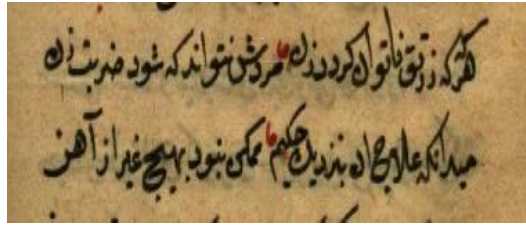 هرکه زدیق ناتوان کرد درزن مردش نتواند که شود ضربت زن
میدانکه علاج ان بنزدیک حکیم ممکن نبود بهیچ غیر از آهن